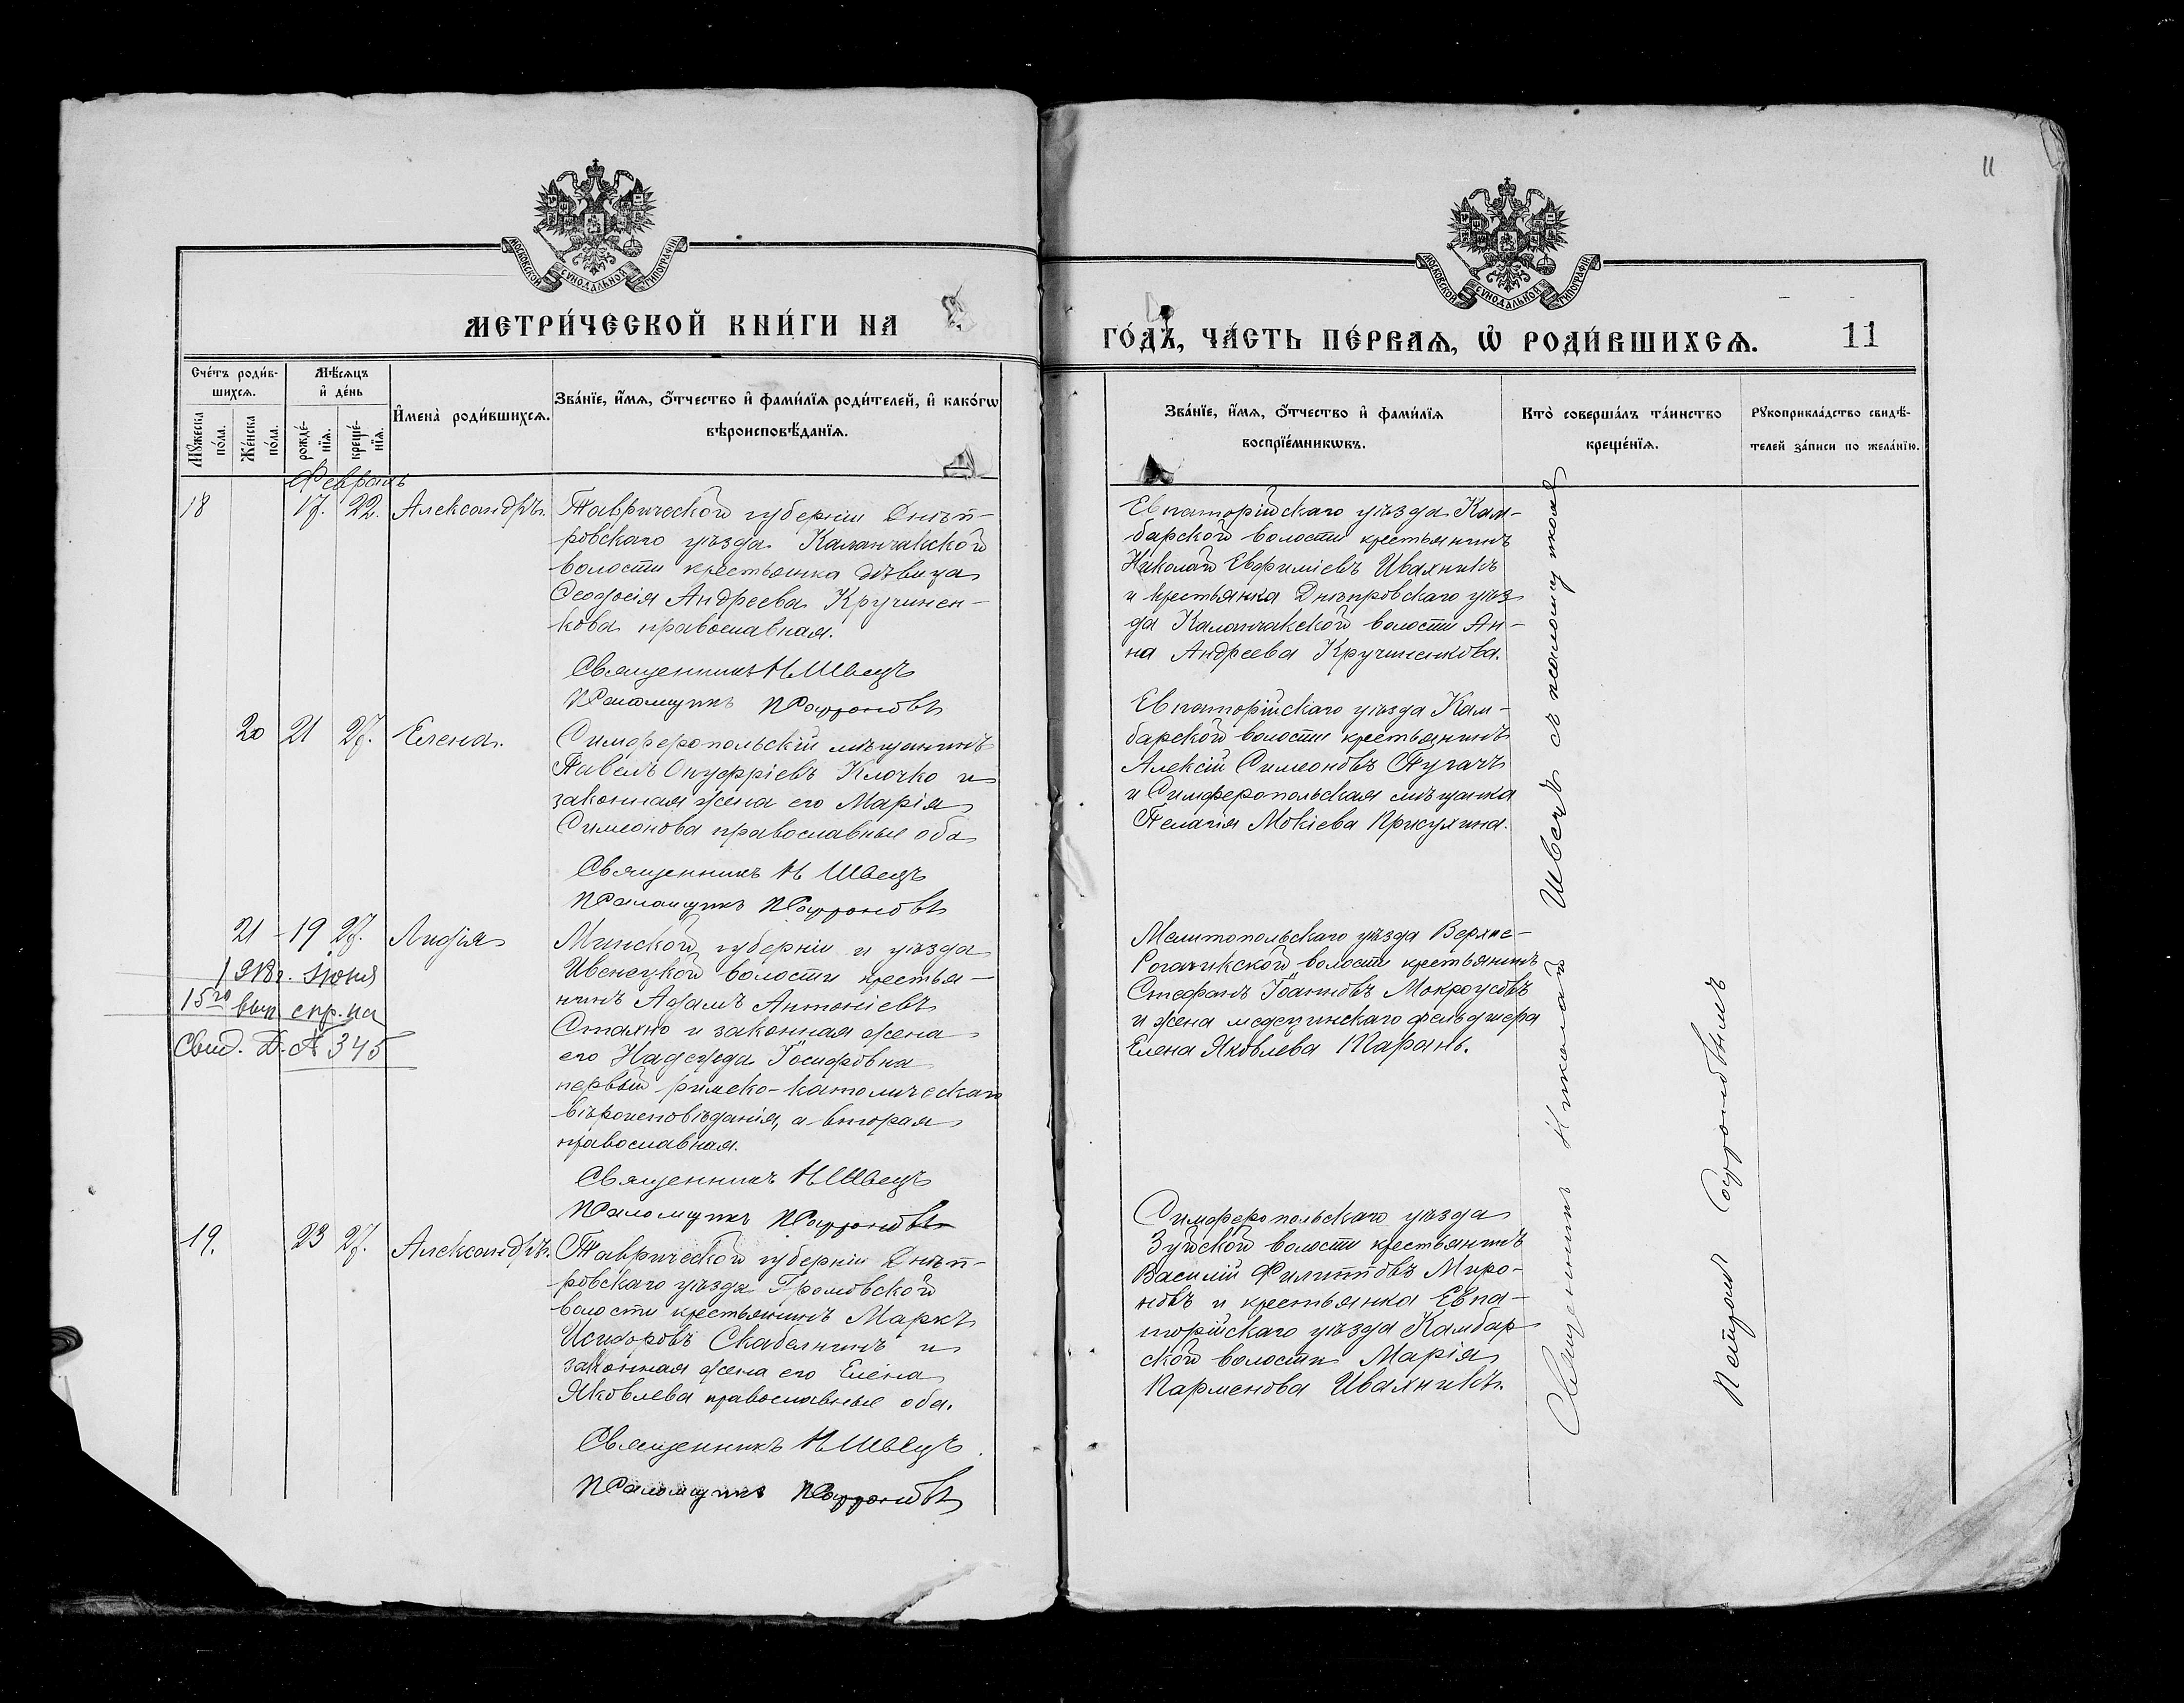 11
МОСКОВСКОЙ СУНОДАЛЬНОЙ ТИПОГРАФІИ
МОСКОВСКОЙ СУНОДАЛЬНОЙ ТИПОГРАФІИ
МЕТРИ́ЧЕСКОЙ КНИ́ГИ НА
ГО́ДЪ, ЧА́СТЬ ПЕ́РВАѦ, Ѡ РОДИ́ВШИХСѦ.
11
Сче́тъ роди́в-
шихсѧ.
Мꙋжеска по́ла.
Же́нска по́ла.
Мѣ́сѧцъ
и҆ де́нь
рожде́-нїѧ.
креще́-нїѧ.
И҆мена̀ роди́вшихсѧ.
Зва́нїе, и҆́мѧ, ѻ҆́тчество и҆ фами́лїѧ роди́телей, и҆ како́гѡ
вѣроисповѣ́данїѧ.
Зва́нїе, и҆́мѧ, ѻ҆́тчество и҆ фами́лїѧ
воспрїе́мникѡвъ.
Кто̀ соверша́лъ та́инство
креще́нїѧ.
Рꙋкоприкла́дство свидѣ́-
телей за́писи по жела́нїю.
Февраль
18 17. 22. Александръ.
Таврической губерніи Днѣп-
ровскаго уѣзда Каланчакской
волости крестьянка дѣвица
Ѳеодосія Андреева Кручинен-
кова православная.
Священникъ Н Швецъ
Псаломщикъ П Софроновъ
Евпаторійскаго уѣзда Кам-
барской волости крестьянинъ
Николай Евфиміевъ Ивахникъ
и крестьянка Днѣпровскаго уѣз
да Каланчакской волости Ан-
на Андреева Кручиненкова.
20 21 27. Елена.
Симферопольскій мѣщанинъ
Павелъ Онуфріевъ Клочко и
законная жена его Марія
Симеонова православные оба
Священникъ Н Швецъ
Псаломщикъ П Софроновъ
Евпаторійскаго уѣзда Кам-
барской волости крестьянинъ
Алексій Симеоновъ Пугачъ
и Симферопольская мѣщанка
Пелагія Мокіева
21 19 27. Лидія
Іюня
вып. спр. на
345
Минской губерніи и уѣзда
Ивенецкой волости крестья-
нинъ Адамъ Антоніевъ
Стахно и законная жена
его Надежда Іосифовна
первый римско-католическаго
вѣроисповѣданія, а вторая
православная.
Священникъ Н Швецъ
Псаломщикъ П Софроновъ
Мелитопольскаго уѣзда Верхне-
Рогачикской волости крестьянинъ
Стефанъ Іоанновъ Мокроусовъ
и жена медецинскаго фельдшера
Елена Яковлева Парань.
19. 23 27. Александръ.
Таврической губерніи Днѣп-
ровскаго уѣзда Громовской
волости крестьянинъ Маркъ
Исидоровъ Скабелкинъ и
законная жена его Елена
Яковлева православные оба.
Священникъ Н Швецъ
Псаломщикъ П Софроновъ
Симферопольскаго уѣзда
Зуйской волости крестьянинъ
Василій Филипповъ Миро-
новъ и крестьянка Евпа-
торійскаго уѣзда Камбар
ской волости Марія
Парменова Ивахникъ.
Священникъ Николай Швецъ съ псаломщикомъ
Петромъ Софроновымъ